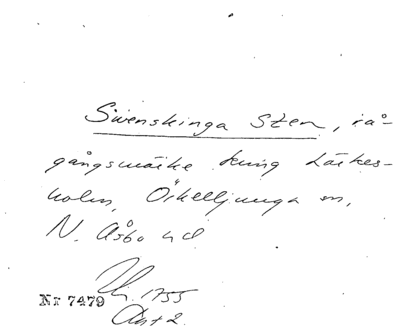 Swenskinga Sten, rå-
gångsmärke kring Lärkes-
holm, Örkelljunga sn,
N. Åsbo hd
1755
Nr 7479
Akt 2